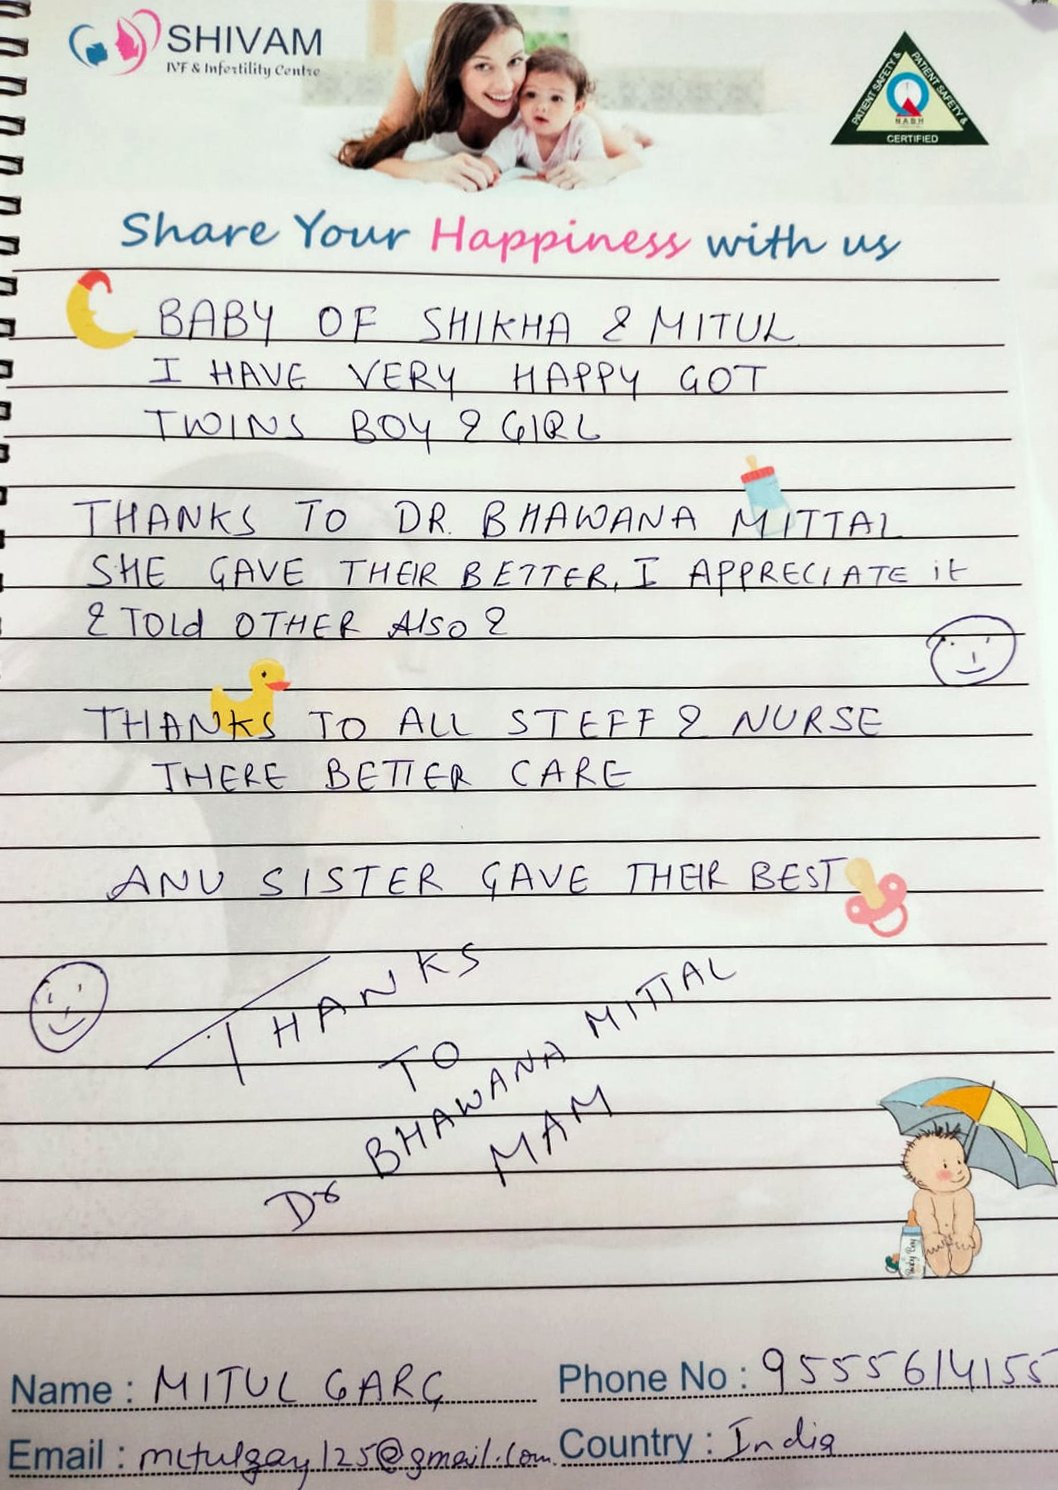 SHIVAM
IVF & Infertility Centre
PATIENT SAFETY &
PATIENT SAFETY &
NABH
CERTIFIED
Share Your Happiness with us
BABY OF SHIKHA & MITUL
I HAVE VERY HAPPY GOT
TWINS BOY & GIRL
THANKS TO DR. BHAWANA MITTAL
SHE GAVE THEIR BETTER, I APPRECIATE it
& TOLd OTHER AlSO &
THANKS TO ALL STEFF & NURSE
THERE BETTER CARE
ANU SISTER GAVE THEIR BEST
THANKS
TO
Dr BHAWANA MITTAL
MAM
Name : MITUL GARG
Phone No : 9555614155
Email : mitulgarg125@gmail.com
Country : India